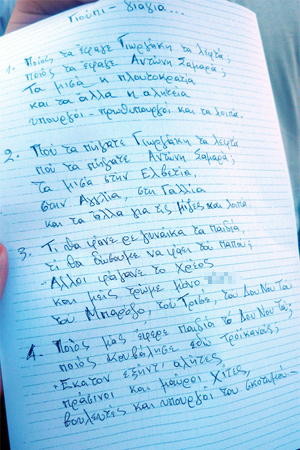 Γιούπι - γιαγια...
1. Ποιός τα έφαγε Γιωργάκη τα λεφτά;
ποιός τα έφαγε Αντώνη Σαμαρά;
Τα μισά η πλουτοκρατία
και τα άλλα η αλητεία
υπουργοί - πρωθυπουργοί και τα λοιπά.
2. Πού τα πήγατε Γιωργάκη τα λεφτά
πού τα πήγατε Αντώνη Σαμαρά;
τα μισά στην Ελβετία,
στην Αγγλία, στη Γαλλία
και τα άλλα για τις μίζες και λοιπά.
3. Τι θα φάνε ρε γυναίκα τα παιδιά,
τι θα δώσουμε να φάει του παπού;
- Άλλοι φάγανε το Χρέος
και μεις τρώμε μόνο
του Μπαρόζο, του Τρισέ, του ΔουΝουΤου
4. Ποιός μας έφερε παιδιά το ΔουΝουΤου;
ποιός κουβάλησε εδώ τρόικανους;
- Εκατόν εξήντα αλήτες
πράσινοι και μαύροι Χίτες,
βουλευτές και υπουργοί του σκοταμού -